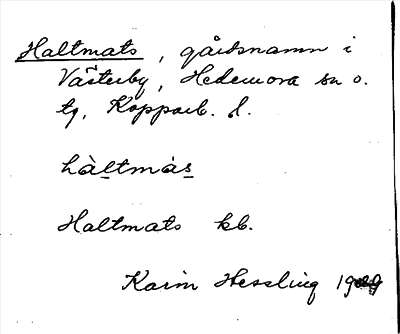 Haltmats, gårdsnamn i
Västerby, Hedemora sn o.
tg, Kopparb. l.
hàltmàs
Haltmats kb.
Karin Hessling